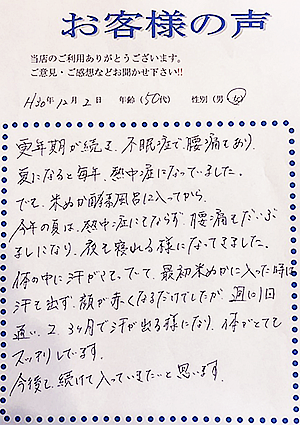 お客様の声
当店のご利用ありがとうございます。
ご意見・ご感想などお聞かせ下さい!!
H30年12月2日 年齢(50代) 性別(男・女)
更年期が続き、不眠症で腰痛もあり、
夏になると毎年、熱中症になっていました。
でも、米ぬか酵素風呂に入ってから、
今年の夏は、熱中症にもならず、腰痛もだいぶ
ましになり、夜も寝れる様になってきました。
体の中に汗が
最初米ぬかに入った時は
汗も出ず、顔が赤くなるだけでしたが、週に1回
通い、2、3ヶ月で汗が出る様になり、体がとても
スッキリしています。
今後も続けて入っていきたいと思います。